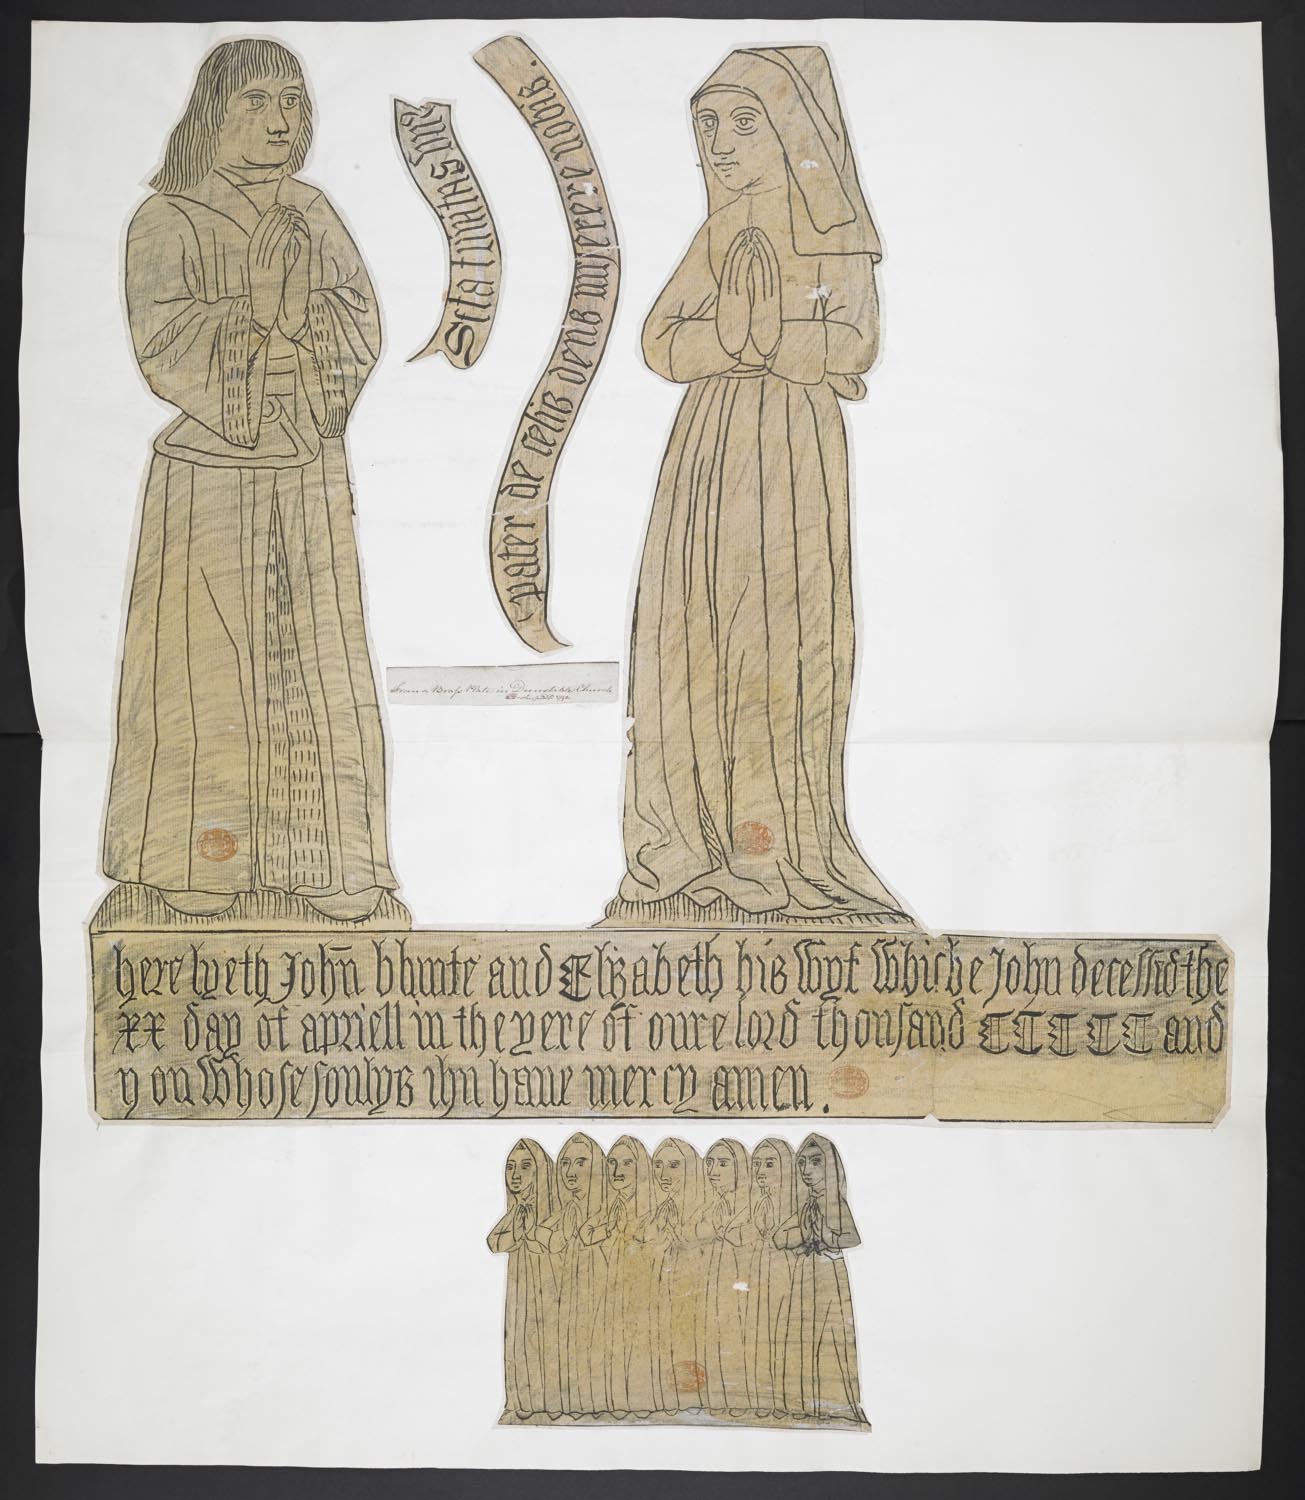 Scta trinitas un⁹
pater de celis deus miserere nobis.
from a Brass Plate in Dunstable Church
here lyeth John blunte and Elizabeth his Wyf Whiche John decessid the
xx day of apriell in the yere of oure lord thousand CCCCC and
ij on Whose soulys ihu haue mercy amen.